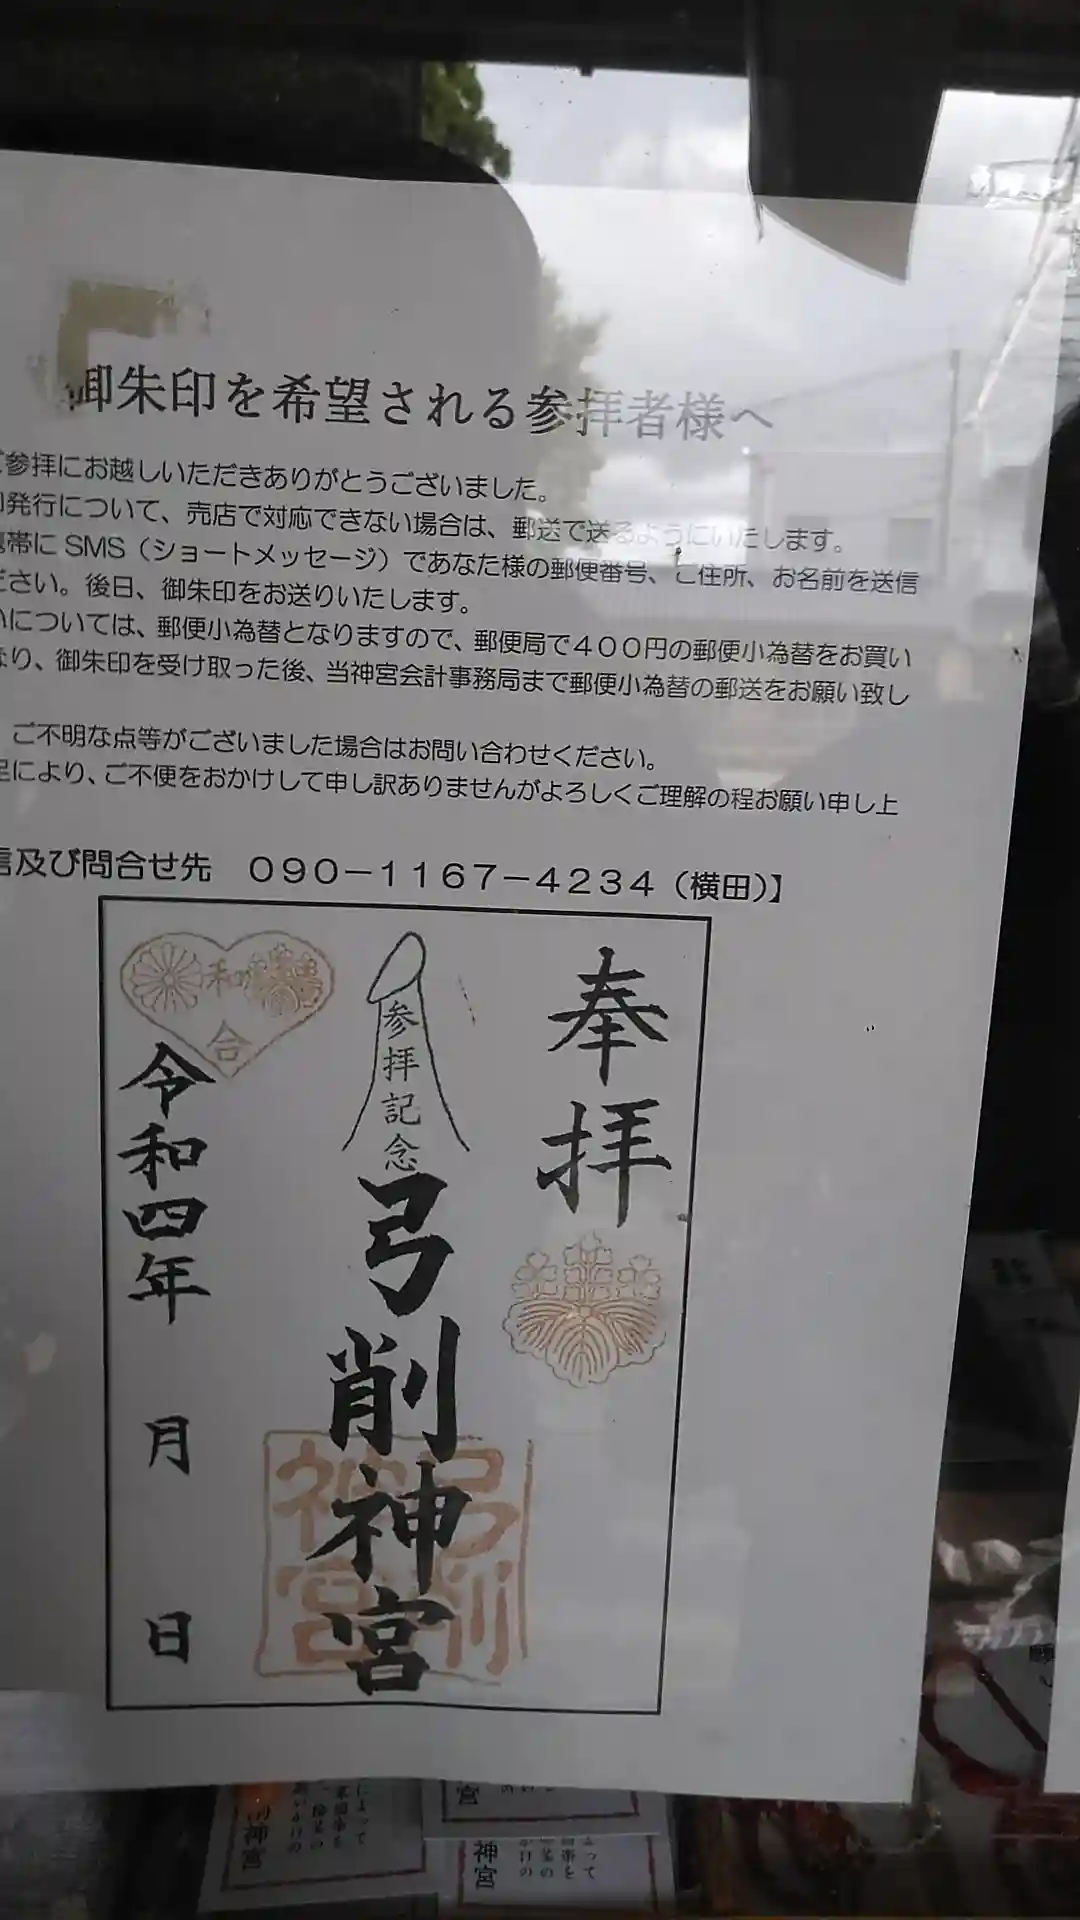 御朱印を希望される参拝者様へ
ご参拝にお越しいただきありがとうございました。
印発行について、売店で対応できない場合は、郵送で送るようにいたします。
携帯に SMS（ショートメッセージ）であなた様の郵便番号、ご住所、お名前を送信
ださい。後日、御朱印をお送りいたします。
いについては、郵便小為替となりますので、郵便局で４００円の郵便小為替をお買い
なり、御朱印を受け取った後、当神宮会計事務局まで郵便小為替の郵送をお願い致し
ご不明な点等がございました場合はお問い合わせください。
足により、ご不便をおかけして申し訳ありませんがよろしくご理解の程お願い申し上
信及び問合せ先　０９０－１１６７－４２３４（横田）】
奉拝
参拝記念
弓削神宮
弓削神宮
和合
令和四年　月　日
神宮
神宮